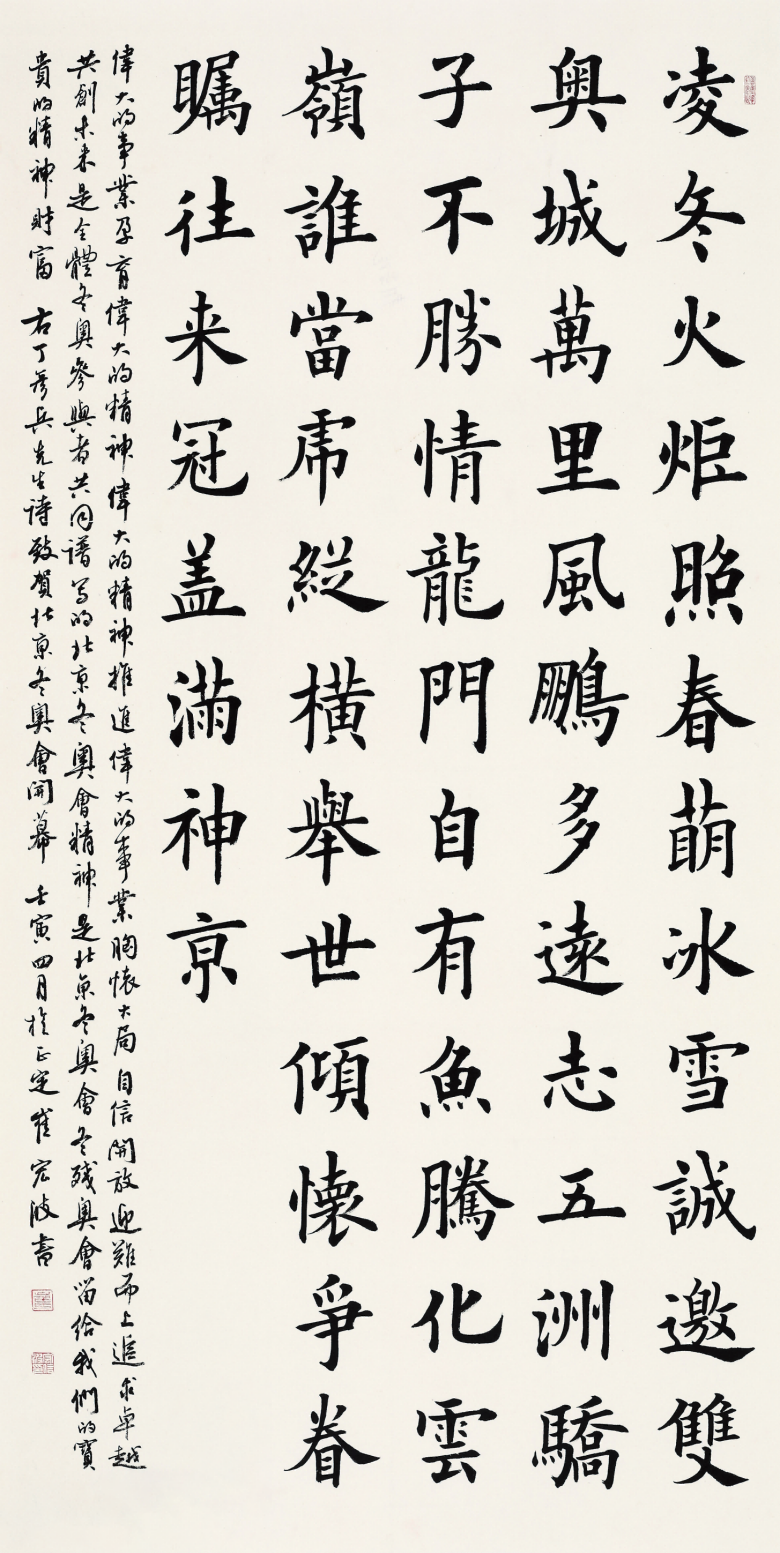 凌冬火炬照春萌冰雪誠邀雙
奥城萬里風鵬多遠志五洲驕
子不勝情龍門自有魚騰化雲
嶺誰當虎縱橫舉世傾懷爭眷
矚往来冠盖滿神京
偉大的事業孕育偉大的精神偉大的精神推進偉大的事業胸懷大局自信開放迎難而上追求卓越
共創未来是全體冬奥參與者共同譜写的北京冬奥會精神是北京冬奥會冬残奥會留給我們的寶
貴的精神財富 右丁彦兵先生诗致贺北京冬奥會開幕 壬寅四月於正定崔宏波書